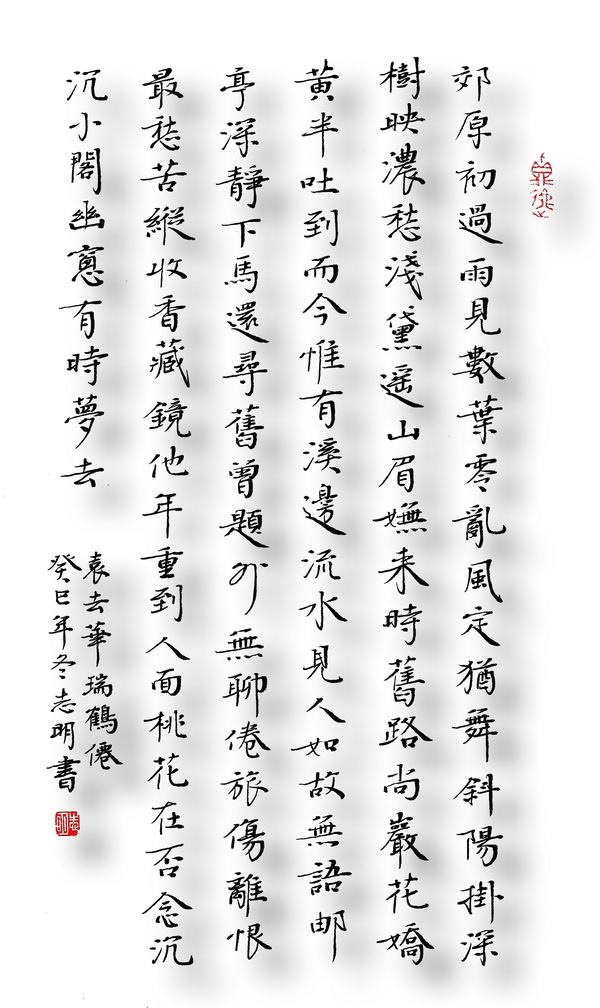 郊原初過雨見數葉零亂風定猶舞斜陽掛深
樹映濃愁淺黛遥山眉嫵来時舊路尚巖花嬌
黃半吐到而今惟有溪邊流水見人如故無語邮
亭深靜下馬還尋舊曾題处無聊倦旅傷離恨
最愁苦縱收香藏鏡他年重到人面桃花在否念沉
沉小閣幽窻有時夢去
袁去華瑞鶴僊
癸巳年冬志明書
志明